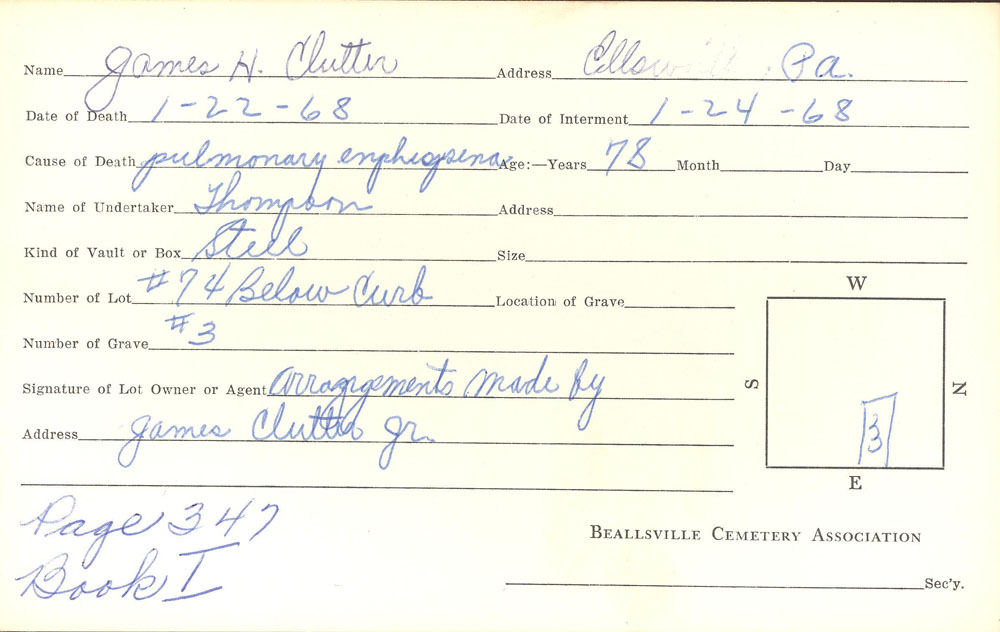 Name James H. Clutter Address Pa.
Date of Death 1-22-68 Date of Interment 1-24-68
Cause of Death pulmonary Age:—Years 78 Month Day
Name of Undertaker Thompson Address
Kind of Vault or Box Steel Size
Number of Lot #74 Below Curb Location of Grave
Number of Grave #3
Signature of Lot Owner or Agent Arrangements made by
Address James Clutter Jr.
W
S
N
3
E
Page 347
Book I
BEALLSVILLE CEMETERY ASSOCIATION
Sec'y.